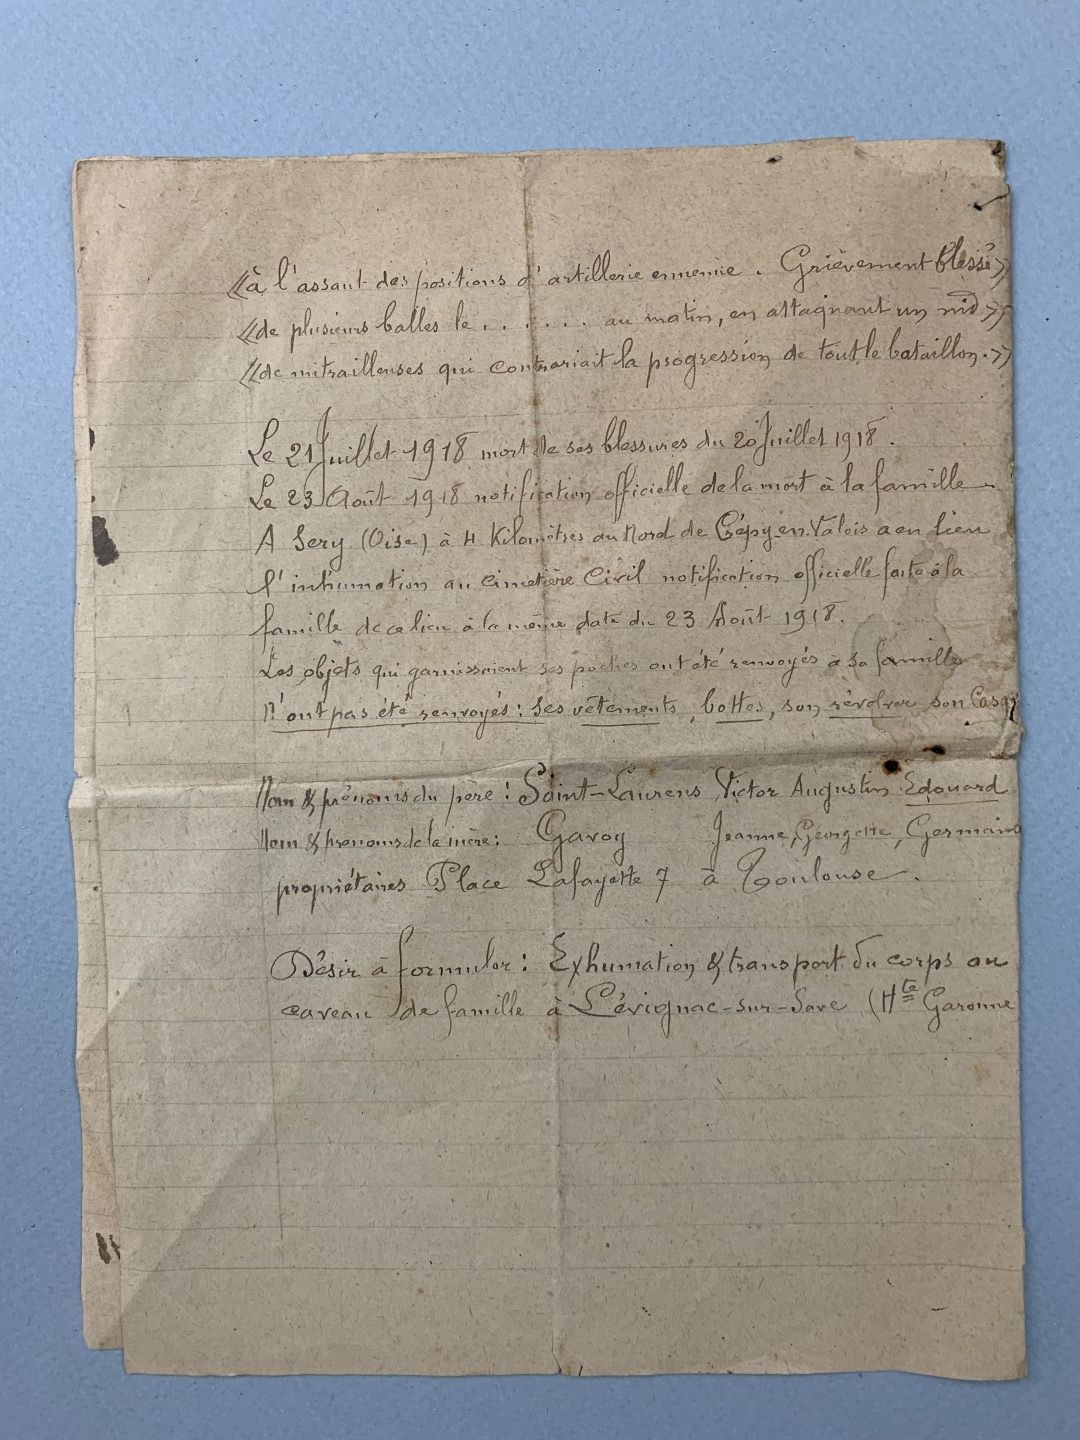 «à l'assaut des positions d'artillerie ennemie. Grièvement blessé»
«de plusieurs balles le . . . . . . au matin, en attaquant un nid»
«de mitrailleuses qui contrariait la progression de tout le bataillon.»
Le 21 Juillet 1918 mort de ses blessures du 20 Juillet 1918.
Le 23 Août 1918 notification officielle de la mort à la famille
A Sery (Oise) à 4 Kilomètres au Nord de Crépy-en-Valois a eu lieu
l'inhumation au cimetière Civil notification officielle faite à la
famille de ce lieu à la même date du 23 Août 1918.
Les objets qui garnissaient ses poches ont été renvoyés à sa famille
N'ont pas été renvoyés: ses vêtements, bottes, son révolver son Casq
Nom & prénoms du père: Saint-Laurens Victor Augustin Edouard
Nom & prenoms de la mère: Gavoy Jeanne, Georgette, Germaine
propriétaires Place Lafayette 7 à Toulouse.
Désir à formuler: Exhumation & transport du corps au
caveau de famille à Lévignac-sur-Save (Hte Garonne